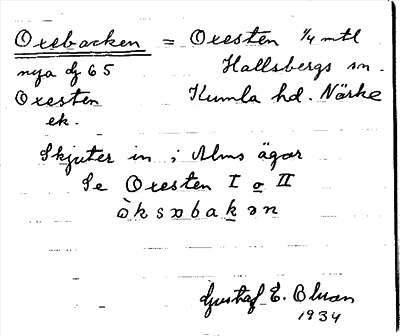 Oxebacken = Oxesten 1/4 mtl
nya dj 65 Hallsbergs sn.
Oxesten Kumla hd. Närke
ek.
Skjuter in i Alms ägor
Se Oxesten I o II
òksəbakən
Gustaf E. Bluan
1934